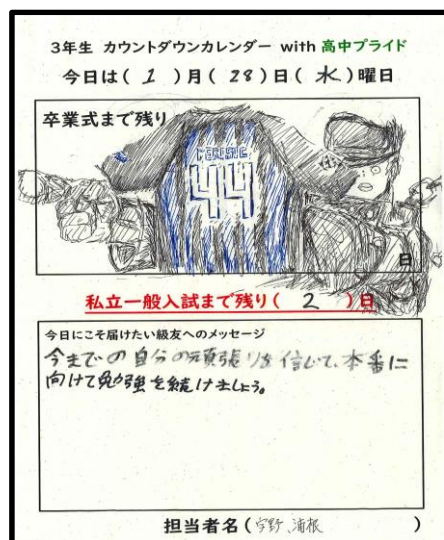 3年生 カウントダウンカレンダー with 高中プライド
今日は( 1 )月( 28 )日( 水 )曜日
卒業式まで残り
PERISIC
44
日
私立一般入試まで残り( 2 )日
今日にこそ届けたい級友へのメッセージ
今までの自分の頑張りを信じて、本番に
向けて勉強を続けましょう。
担当者名(宇野、浦根 )